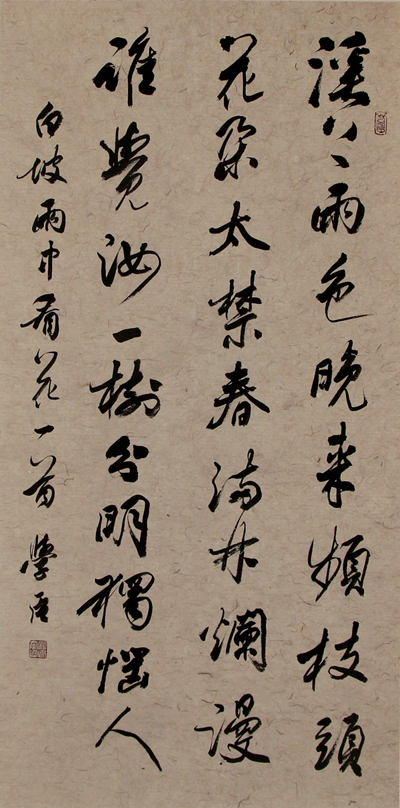 漠々雨色晚来頻枝頭
花朵太禁春満林爛漫
誰覺汝一樹分明獨惱人
白坡雨中看花一首 學